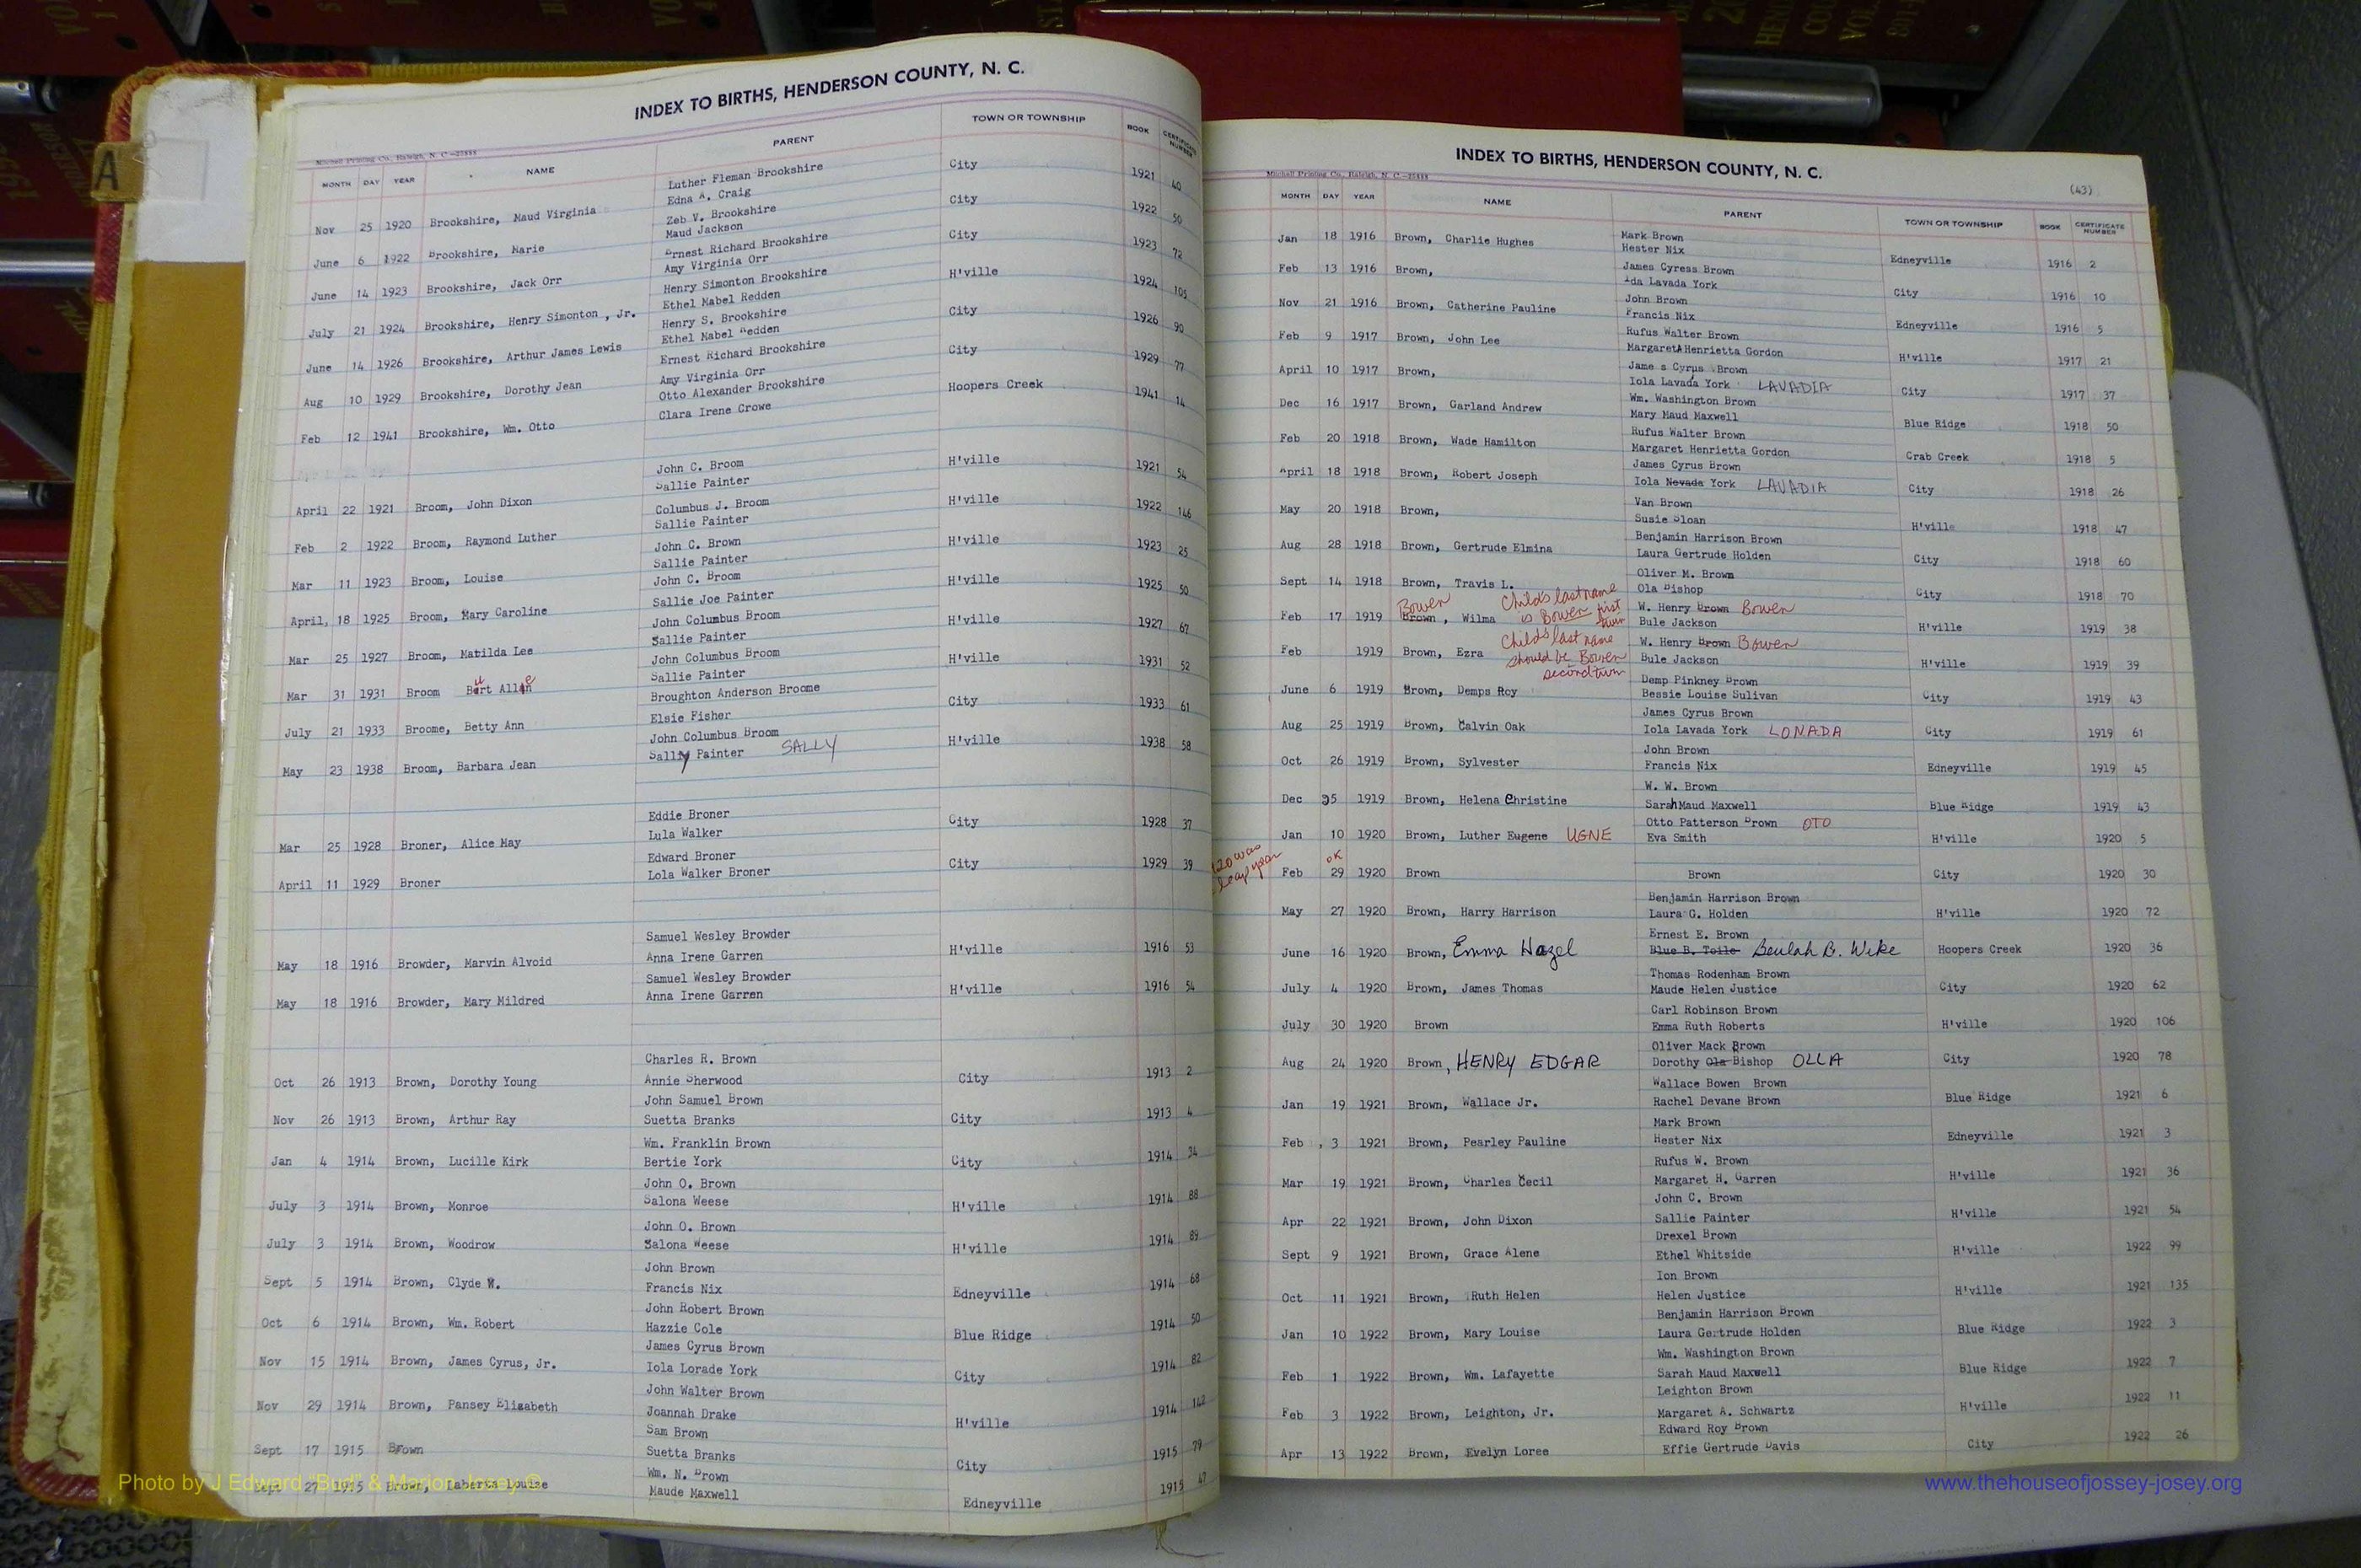 INDEX TO BIRTHS, HENDERSON COUNTY, N. C.
Mitchell Printing Co., Raleigh, N. C.
MONTH DAY YEAR NAME PARENT TOWN OR TOWNSHIP BOOK CERTIFICATE NUMBER
Luther Fleman Brookshire
Nov 25 1920 Brookshire, Maud Virginia Edna A. Craig City 1921 40
Zeb V. Brookshire
June 6 1922 Brookshire, Marie Maud Jackson City 1922 50
Ernest Richard Brookshire
June 14 1923 Brookshire, Jack Orr Amy Virginia Orr City 1923 72
Henry Simonton Brookshire
July 21 1924 Brookshire, Henry Simonton, Jr. Ethel Mabel Redden H'ville 1924 105
Henry S. Brookshire
June 14 1926 Brookshire, Arthur James Lewis Ethel Mabel Redden City 1926 90
Ernest Richard Brookshire
Aug 10 1929 Brookshire, Dorothy Jean Amy Virginia Orr City 1929 77
Otto Alexander Brookshire
Feb 12 1941 Brookshire, Wm. Otto Clara Irene Crowe Hoopers Creek 1941 14
John C. Broom
April 22 1921 Broom, John Dixon Sallie Painter H'ville 1921 54
Columbus J. Broom
Feb 2 1922 Broom, Raymond Luther Sallie Painter H'ville 1922 146
John C. Brown
Mar 11 1923 Broom, Louise Sallie Painter H'ville 1923 25
John C. Broom
April, 18 1925 Broom, Mary Caroline Sallie Joe Painter H'ville 1925 50
John Columbus Broom
Mar 25 1927 Broom, Matilda Lee Sallie Painter H'ville 1927 67
John Columbus Broom
Mar 31 1931 Broom Sallie Painter H'ville 1931 52
Broughton Anderson Broome
July 21 1933 Broome, Betty Ann Elsie Fisher City 1933 61
John Columbus Broom
May 23 1938 Broom, Barbara Jean Sally Painter SALLY H'ville 1938 58
Eddie Broner
Mar 25 1928 Broner, Alice May Lula Walker City 1928 37
Edward Broner
April 11 1929 Broner Lola Walker Broner City 1929 39
Samuel Wesley Browder
May 18 1916 Browder, Marvin Alvoid Anna Irene Garren H'ville 1916 53
Samuel Wesley Browder
May 18 1916 Browder, Mary Mildred Anna Irene Garren H'ville 1916 54
Charles R. Brown
Oct 26 1913 Brown, Dorothy Young Annie Sherwood City 1913 2
John Samuel Brown
Nov 26 1913 Brown, Arthur Ray Suetta Branks City 1913 4
Wm. Franklin Brown
Jan 4 1914 Brown, Lucille Kirk Bertie York City 1914 34
John O. Brown
July 3 1914 Brown, Monroe Salona Weese H'ville 1914 88
John O. Brown
July 3 1914 Brown, Woodrow Salona Weese H'ville 1914 89
John Brown
Sept 5 1914 Brown, Clyde Francis Nix Edneyville 1914 68
John Robert Brown
Oct 6 1914 Brown, Wm. Robert Hazzie Cole Blue Ridge 1914 50
James Cyrus Brown
Nov 15 1914 Brown, James Cyrus, Jr. Iola Lorade York City 1914 82
John Walter Brown
Nov 29 1914 Brown, Pansey Elizabeth Joannah Drake H'ville 1914 142
Sam Brown
Sept 17 1915 Brown Suetta Branks City 1915 79
Wm. N. Brown
Sept 27 1915 Brown, Louise Maude Maxwell Edneyville 1915 47
INDEX TO BIRTHS, HENDERSON COUNTY, N. C.
Mitchell Printing Co., Raleigh, N. C.
(43)
MONTH DAY YEAR NAME PARENT TOWN OR TOWNSHIP BOOK CERTIFICATE NUMBER
Mark Brown
Jan 18 1916 Brown, Charlie Hughes Hester Nix Edneyville 1916 2
James Cyress Brown
Feb 13 1916 Brown, Ida Lavada York City 1916 10
John Brown
Nov 21 1916 Brown, Catherine Pauline Francis Nix Edneyville 1916 5
Rufus Walter Brown
Feb 9 1917 Brown, John Lee Margaret Henrietta Gordon H'ville 1917 21
James Cyrus Brown
April 10 1917 Brown, Iola Lavada York LAVADIA City 1917 37
Wm. Washington Brown
Dec 16 1917 Brown, Garland Andrew Mary Maud Maxwell Blue Ridge 1918 50
Rufus Walter Brown
Feb 20 1918 Brown, Wade Hamilton Margaret Henrietta Gordon Crab Creek 1918 5
James Cyrus Brown
April 18 1918 Brown, Robert Joseph Iola Nevada York LAVADIA City 1918 26
Van Brown
May 20 1918 Brown, Susie Sloan H'ville 1918 47
Benjamin Harrison Brown
Aug 28 1918 Brown, Gertrude Elmina Laura Gertrude Holden City 1918 60
Oliver M. Brown
Sept 14 1918 Brown, Travis L. Ola Bishop City 1918 70
Bowen Child's last name is Bowen first twin W. Henry Brown Bowen
Feb 17 1919 Brown, Wilma Bule Jackson H'ville 1919 38
Child's last name should be Bowen second twin W. Henry Brown Bowen
Feb 1919 Brown, Ezra Bule Jackson H'ville 1919 39
Demp Pinkney Brown
June 6 1919 Brown, Demps Roy Bessie Louise Sulivan City 1919 43
James Cyrus Brown
Aug 25 1919 Brown, Calvin Oak Iola Lavada York LONADA City 1919 61
John Brown
Oct 26 1919 Brown, Sylvester Francis Nix Edneyville 1919 45
W. W. Brown
Dec 25 1919 Brown, Helena Christine Sarah Maud Maxwell Blue Ridge 1919 43
Otto Patterson Brown OTO
Jan 10 1920 Brown, Luther Eugene UGNE Eva Smith H'ville 1920 5
1920 was leap year OK
Feb 29 1920 Brown Brown City 1920 30
Benjamin Harrison Brown
May 27 1920 Brown, Harry Harrison Laura G. Holden H'ville 1920 72
Ernest E. Brown
June 16 1920 Brown, Emma Hazel Blue B. Toile Beulah B. Wike Hoopers Creek 1920 36
Thomas Rodenham Brown
July 4 1920 Brown, James Thomas Maude Helen Justice City 1920 62
Carl Robinson Brown
July 30 1920 Brown Emma Ruth Roberts H'ville 1920 106
Oliver Mack Brown
Aug 24 1920 Brown, HENRY EDGAR Dorothy Ola Bishop OLLA City 1920 78
Wallace Bowen Brown
Jan 19 1921 Brown, Wallace Jr. Rachel Devane Brown Blue Ridge 1921 6
Mark Brown
Feb 3 1921 Brown, Pearley Pauline Hester Nix Edneyville 1921 3
Rufus W. Brown
Mar 19 1921 Brown, Charles Cecil Margaret H. Garren H'ville 1921 36
John C. Brown
Apr 22 1921 Brown, John Dixon Sallie Painter H'ville 1921 54
Drexel Brown
Sept 9 1921 Brown, Grace Alene Ethel Whitside H'ville 1922 99
Ion Brown
Oct 11 1921 Brown, Ruth Helen Helen Justice H'ville 1921 135
Benjamin Harrison Brown
Jan 10 1922 Brown, Mary Louise Laura Gertrude Holden Blue Ridge 1922 3
Wm. Washington Brown
Feb 1 1922 Brown, Wm. Lafayette Sarah Maud Maxwell Blue Ridge 1922 7
Leighton Brown
Feb 3 1922 Brown, Leighton, Jr. Margaret A. Schwartz H'ville 1922 11
Edward Roy Brown
Apr 13 1922 Brown, Evelyn Loree Effie Gertrude Davis City 1922 26
Photo by J Edward "Bud" & Marion Josey ©
www.thehouseofjossey-josey.org
A